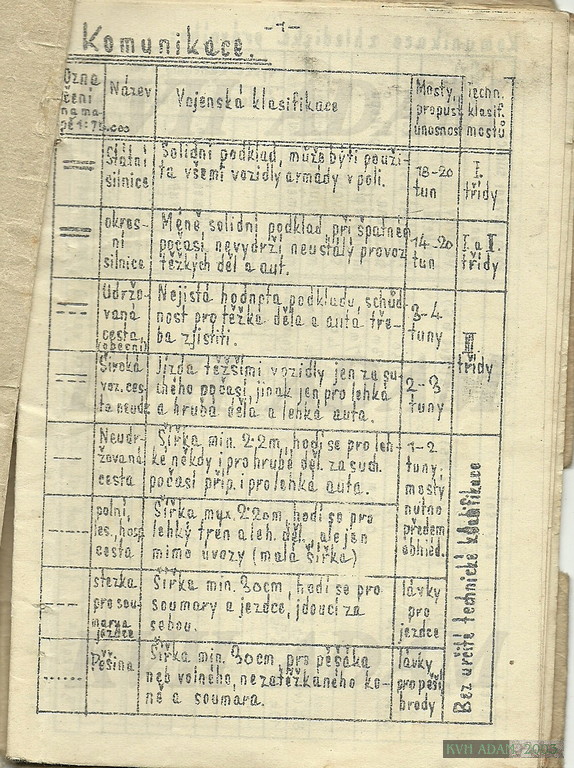 -1-
Komunikace.
Ozna
čení
na ma-
pě 1:75.000
Název
Vojenská klasifikace
Mosty,
propust.
únosnost
Techn.
klasif.
mostů
Státní
silnice
Solidní podklad, může býti použi-
ta všemi vozidly armády v poli.
18-20
tun
I.
třídy
okres-
ní
silnice
Méně solidní podklad, při špatném
počasí nevydrží neustálý provoz
těžkých děl a aut.
14-20
tun
I. a II.
třídy
Udržo-
vaná
cesta
(obecní)
Nejistá hodnota podkladu, schůd-
nost pro těžká děla a auta tře-
ba zjistiti.
3-4
tuny
třídy
Široká
voz. ces-
ta neudr.
Jízda těžšími vozidly jen za su-
chého počasí, jinak jen pro lehká
a hrubá děla a lehká auta.
2-3
tuny
Neudr-
žovaná
cesta
Šířka min. 2·2m, hodí se pro leh-
ké někdy i pro hrubé děl. za such.
počasí příp. i pro lehká auta.
1-2
tuny,
mosty
nutno
předem
ohléd.
Bez určité technické klasifikace
polní,
les., hosp.
cesta
Šířka max. 2·20m, hodí se pro
lehký trén a leh. děl., ale jen
mimo úvozy (malá šířka)
stezka
pro sou-
mary a
jezdce
Šířka min. 30cm, hodí se pro
soumary a jezdce, jdoucí za
sebou.
lávky
pro
jezdce
Pěšina
Šířka min. 30cm, pro pěšáka
neb volného, nezatěžkaného ko-
ně a soumara.
lávky
pro pěší
brody
KVH ADAM 2005